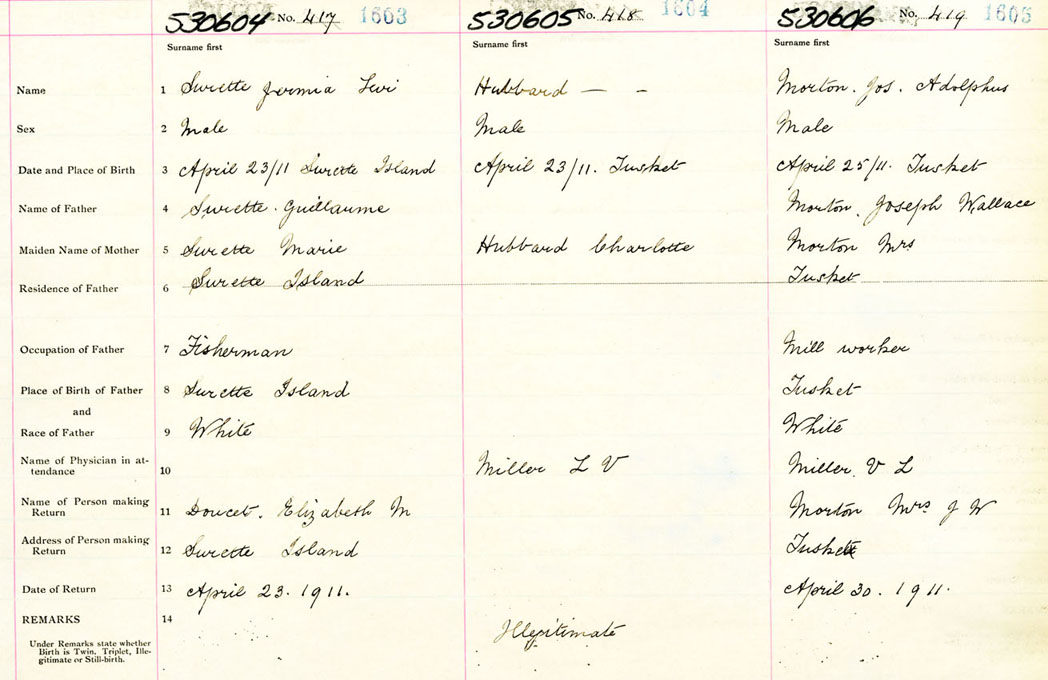 530604 No. 417 1603 530605 No. 418 1604 530606 No. 419 1605
Surname first Surname first Surname first
Name 1 Surette Jermia Levi Hubbard — - Morton. Jos. Adolphus
Sex 2 Male Male Male
Date and Place of Birth 3 April 23/11 Surette Island April 23/11. Tusket April 25/11. Tusket
Name of Father 4 Surette. Guillaume Morton, Joseph Wallace
Maiden Name of Mother 5 Surette Marie Hubbard Charlotte Morton Mrs
Residence of Father 6 Surette Island Tusket
Occupation of Father 7 Fisherman Mill worker
Place of Birth of Father 8 Surette Island Tusket
and
Race of Father 9 White White
Name of Physician in at-
tendance 10 Miller L V Miller, V L
Name of Person making
Return 11 Doucet. Elizabeth M Morton Mrs J W
Address of Person making
Return 12 Surette Island Tusket
Date of Return 13 April 23. 1911. April 30. 1911.
REMARKS 14
Illegitimate
Under Remarks state whether
Birth is Twin, Triplet, Ille-
gitimate or Still-birth.